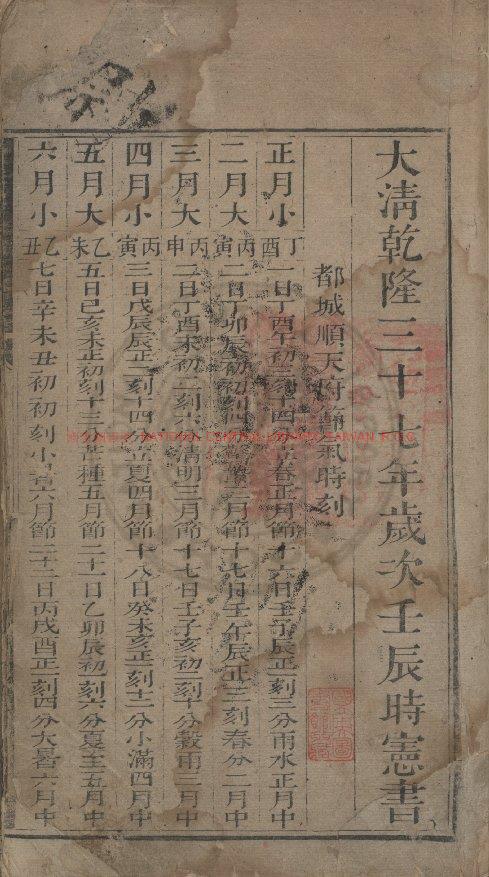 大清乾隆三十七年歲次壬辰時憲書
都城順天府節氣時刻
正月小 丁酉 一日丁酉午初三刻十四分立春正月節 十六日壬子辰正一刻三分雨水正月中
二月大 丙寅 二日丁卯辰初初刻 二月節 十七日壬午辰正三刻春分二月中
三月大 丙申 二日丁酉未初二刻六分清明三月節 十七日壬子亥初二刻十分穀雨三月中
四月小 丙寅 三日戊辰辰正二刻十四分立夏四月節 十八日癸未亥正一刻十二分小滿四月中
五月大 乙未 五日己亥未正初刻十三分芒種五月節 二十一日乙卯辰初一刻六分夏至五月中
六月小 乙丑 七日辛未丑初初刻小暑六月節 二十二日丙戌酉正一刻四分大暑六月中
NATIONAL CENTRAL LIBRARY, TAIWAN, R.O.C.